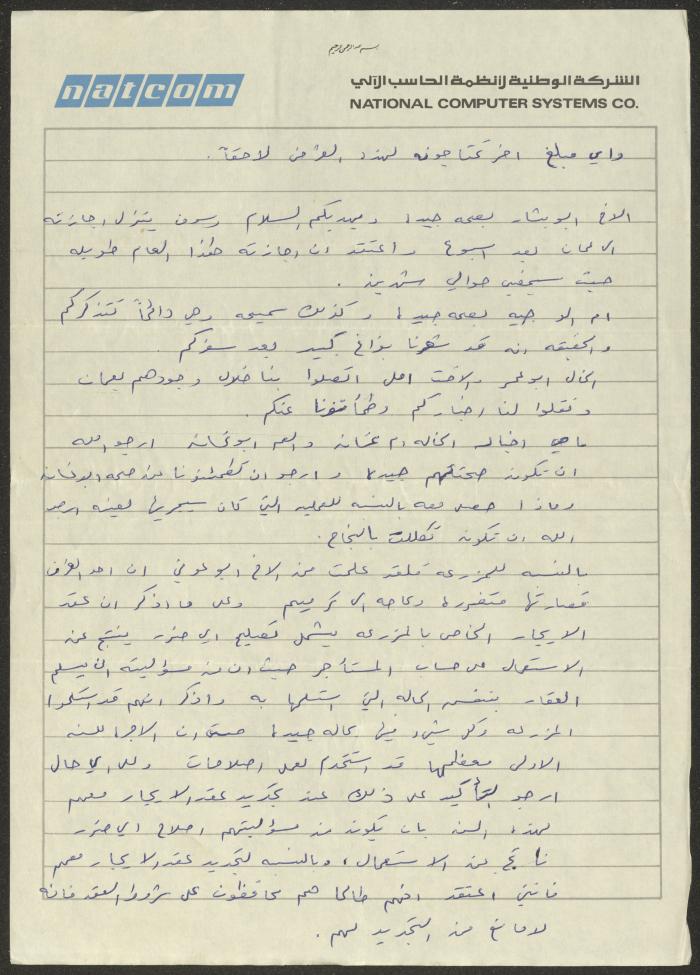 بسم الله الرحمن الرحيم
natcom
الشركة الوطنية لأنظمة الحاسب الآلي
NATIONAL COMPUTER SYSTEMS CO.
واي مبلغ اخر تحتاجونه لهذا الغرض لاحقاً .
الاخ ابو بشار بصحه جيده ويهديكم السلام وسوف ينزل اجازته
الى عمان بعد اسبوع واعتقد ان اجازته هذا العام طويله
حيث سيمضي حوالي شهرين .
ام الوجيه بصحه جيده وكذلك سميحه وهي دائماً تتذكركم
والحقيقه انه قد شعرنا بفراغ كبير بعد سفركم
الخال ابو عمر والاخت امل اتصلوا بنا خلال وجودهم بعمان
ونقلوا لنا اخباركم وطمأنونا عنكم .
ما هي اخبار الخاله ام غسان والعم ابو غسان ارجو الله
ان تكون صحتهم جيده وارجو ان تطمئنونا عن صحة ابو غسان
وماذا حصل معه بالنسبه للعمليه التي كان سيجريها لعينه ارجو
الله ان تكون تكللت بالنجاح .
بالنسبه للمزرعه فلقد علمت من الاخ ابو عوني ان احد الغرف
قصارتها متضرره وبحاجه الى ترميم وعلى ما اذكر ان عقد
الايجار الخاص بالمزرعه يشمل تصليح اي ضرر ينتج عن
الاستعمال على حساب المستأجر حيث ان من مسؤليته ان يسلم
العقار بنفس الحاله التي استلمها به واذكر انهم قد استلموا
المزرعه وكل شيء فيها بحاله جيده حتى ان الاجره للسنه
الاولى معظمها قد استخدم لعمل اصلاحات وعلى اي حال
ارجو التأكيد على ذلك عند تجديد عقد الايجار معهم
لهذه السنه بان يكون من مسؤليتهم اصلاح اي ضرر
ناتج عن الاستعمال ، وبالنسبه لتجديد عقد الايجار معهم
فانني اعتقد انهم طالما هم محافظون على شروط العقد فانه
لا مانع من التجديد لهم .